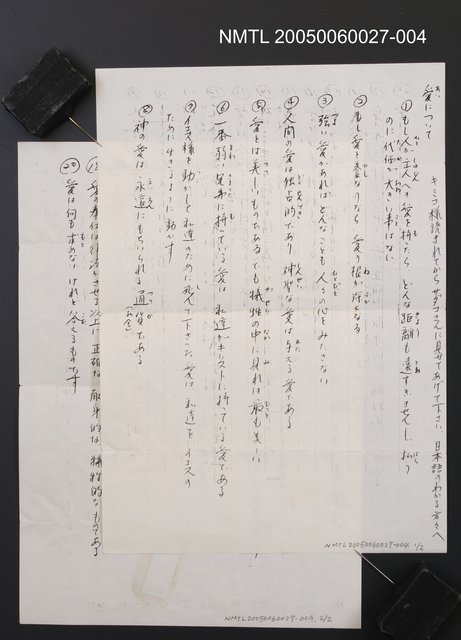 NMTL 20050060027-004
愛について
キミコ様読まれてから ぜひ フミエに見せてあげて下さい、日本語のわかる方々へ
① もし人が主人へ愛を持たら どんな距離も遠すぎません、払う
のに代価が大きい事はない
② もし愛を養なうなら 愛の根が深くなる
③ 強い愛があればどんなことも人々の心をみたさない
④ 人間の愛は独占的であり 神聖な愛は与える愛である
⑤ 愛とは美しいものである でも犠牲の中に見れば 最も美しい
⑥ 一番弱い兄弟に持っている愛は 私達がキリストに持っている愛である
⑦ イエス様を動かして私達のために死んで下さった愛は 私達をイエスの
ために生きるように動かす
神の愛は永遠にもちいられる通貨である
(お金)
NMTL20050060027-004. 1/2
愛の奉仕は 以上に 正確な 献身的な 犠牲的なものである
愛は何も求めない けれど 与えるものです
NMTL20050060027-004. 2/2